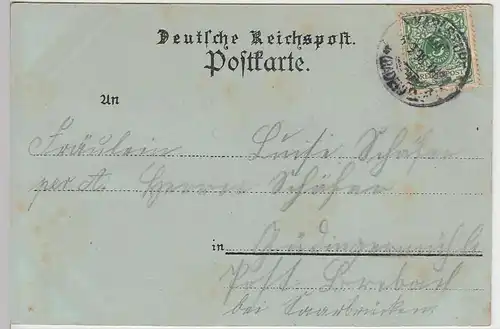 Deutsche Reichspost.
Postkarte.
An
Fräulein Luise Schäfer
per A. Herrn Schäfer
in Güdingermühle
Post Brebach
bei Saarbrücken